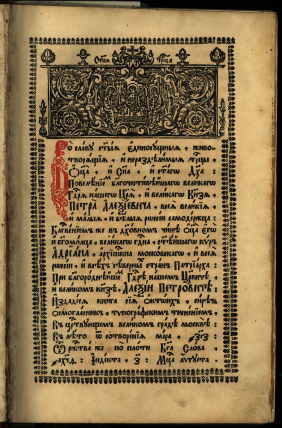 Во славу ст҃ыя единосущныя, живо
творящія, и нераздѣлимыя тр҃цы
Оц҃а, и Сн҃а, и ст҃агѡ Дх҃а:
Повелѣніемъ благочестивѣйшагѡ великагѡ
Гдр҃я нашегѡ Цр҃я, и великагѡ Кн҃зя,
ПЕТРА АЛЕѮІЕВИЧА, всея великія,
и малыя, и бѣлыя рѡссіи самодержца:
Благвеніемъ же въ дх҃овномъ чинѣ оц҃а егѡ
и бг҃омолца, великагѡ гдн҃а, ст҃ѣйшагѡ кѵръ
АДРІАНА, архіепкпа московскагѡ и всея
рѡссіи, и всѣхъ сѣверныхъ странъ Патріарха:
При благороднѣйшемъ Гдр҃ѣ нашемъ Цр҃евичѣ,
и великомъ кн҃зѣ, АЛЕѮІИ ПЕТРОВИЧѢ,
Издадеся книга сія Октѡихъ, сирѣчь
осмогласникъ, тѵпографскимъ тисненіемъ,
въ царствующемъ великомъ градѣ москвѣ:
Въ лѣто ѿ сотворенія міра,
Ѿ ржⷭтва же по плоти Бг҃а Слова
Індікта, Мц҃а аѵгуста